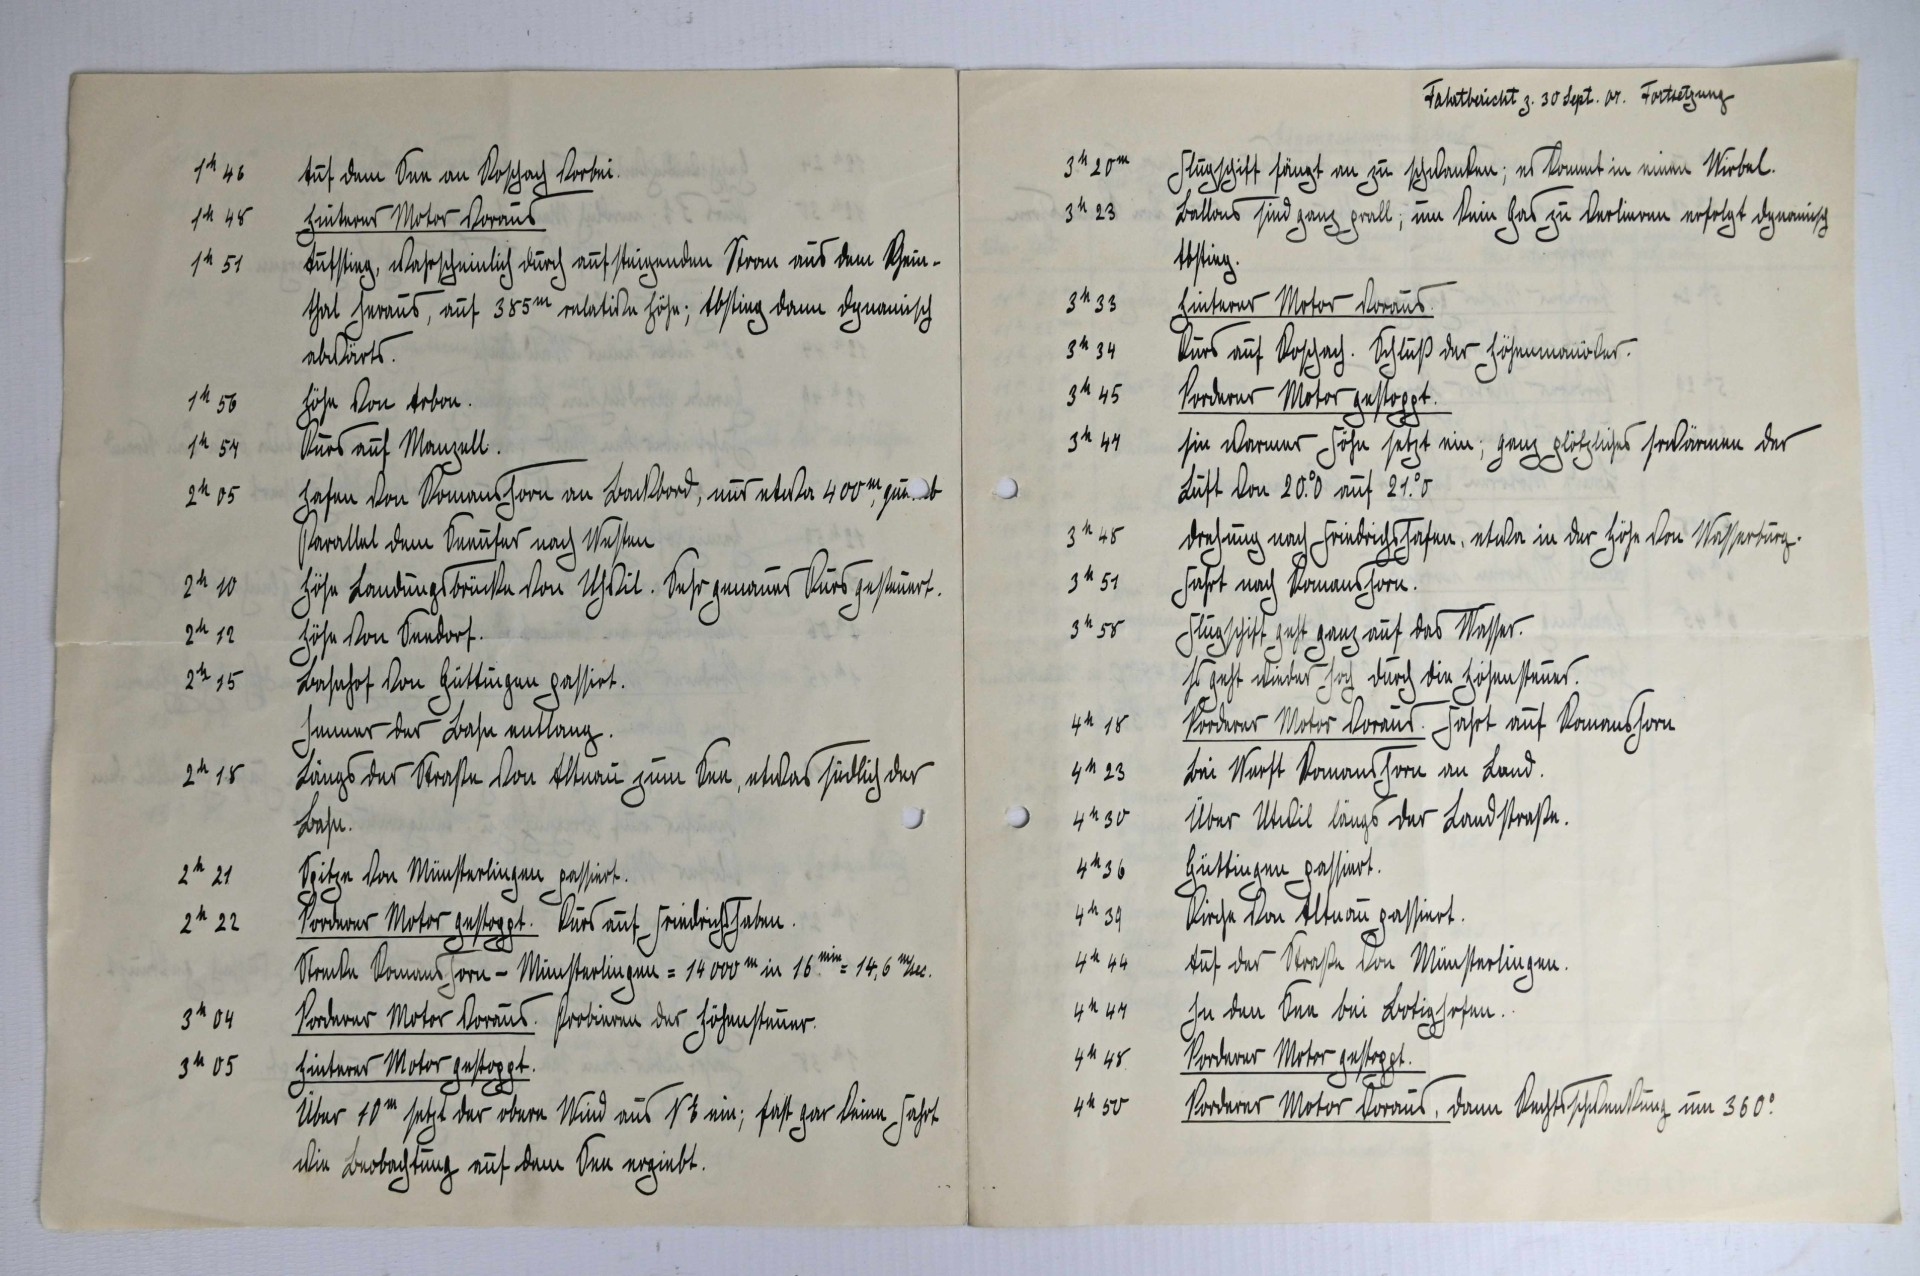 1h 46 Auf dem See an Roschach vorbei.
1h 48 Hinterer Motor voraus
1h 51 Aufstieg, wahrscheinlich durch aufsteigenden Strom aus dem Rhein-
thal heraus, auf 385m relative Höhe; Abstieg dann dynamisch
abwärts.
1h 56 Höhe von Arbon.
1h 57 Kurs auf Manzell.
2h 05 Hafen von Romanshorn an Backbord, nur etwa 400m,
Parallel dem Seeufer nach Westen
2h 10 Höhe Landungsbrücke von Uhwil. Sehr genauer Kurs gesteuert.
2h 12 Höhe von Seedorf.
2h 15 Bahnhof von Güttingen passirt.
Immer der Bahn entlang.
2h 18 Längs der Straße von Altnau zum See, etwas südlich der
Bahn.
2h 21 Spitze von Münsterlingen passiert.
2h 22 Vorderer Motor gestoppt. Kurs auf Friedrichshaben.
Strecke Romanshorn – Münsterlingen = 14000m in 16min = 14,6 m/sec.
3h 04 Vorderer Motor voraus. Probieren der Höhensteuer.
3h 05 Hinterer Motor gestoppt.
Über 10m setzt der obere Wind aus NE ein; fast gar keine Fahrt
wie Beobachtung auf dem See ergiebt.
Fahrtbericht z. 30 Sept. 07. Fortsetzung
3h 20m Flugschiff fängt an zu schwanken; es kommt in einen Wirbel.
3h 23 Ballons sind ganz prall; um kein Gas zu verlieren erfolgt dynamisch
Abstieg.
3h 33 Hinterer Motor voraus.
3h 34 Kurs auf Roschach. Schluß der Höhenmanöver.
3h 45 Vorderer Motor gestoppt.
3h 47 Ein warmer Föhn setzt ein; ganz plötzliches Erwärmen der
Luft von 20.°0 auf 21.°0
3h 48 Drehung nach Friedrichshafen, etwa in der Höhe von Wasserburg.
3h 51 Fahrt nach Romanshorn.
3h 58 Flugschiff geht ganz auf das Wasser.
Es geht wieder hoch durch die Höhensteuer.
4h 18 Vorderer Motor voraus. Fahrt auf Romanshorn
4h 23 Bei Werft Romanshorn an Land.
4h 30 Über Utwil längs der Landstraße.
4h 36 Güttingen passiert.
4h 39 Kirche von Altnau passiert.
4h 44 Auf der Straße von Münsterlingen.
4h 47 In den See bei Botighofen.
4h 48 Vorderer Motor gestoppt.
4h 50 Vorderer Motor voraus, dann Rechtsschwenkung um 360°.